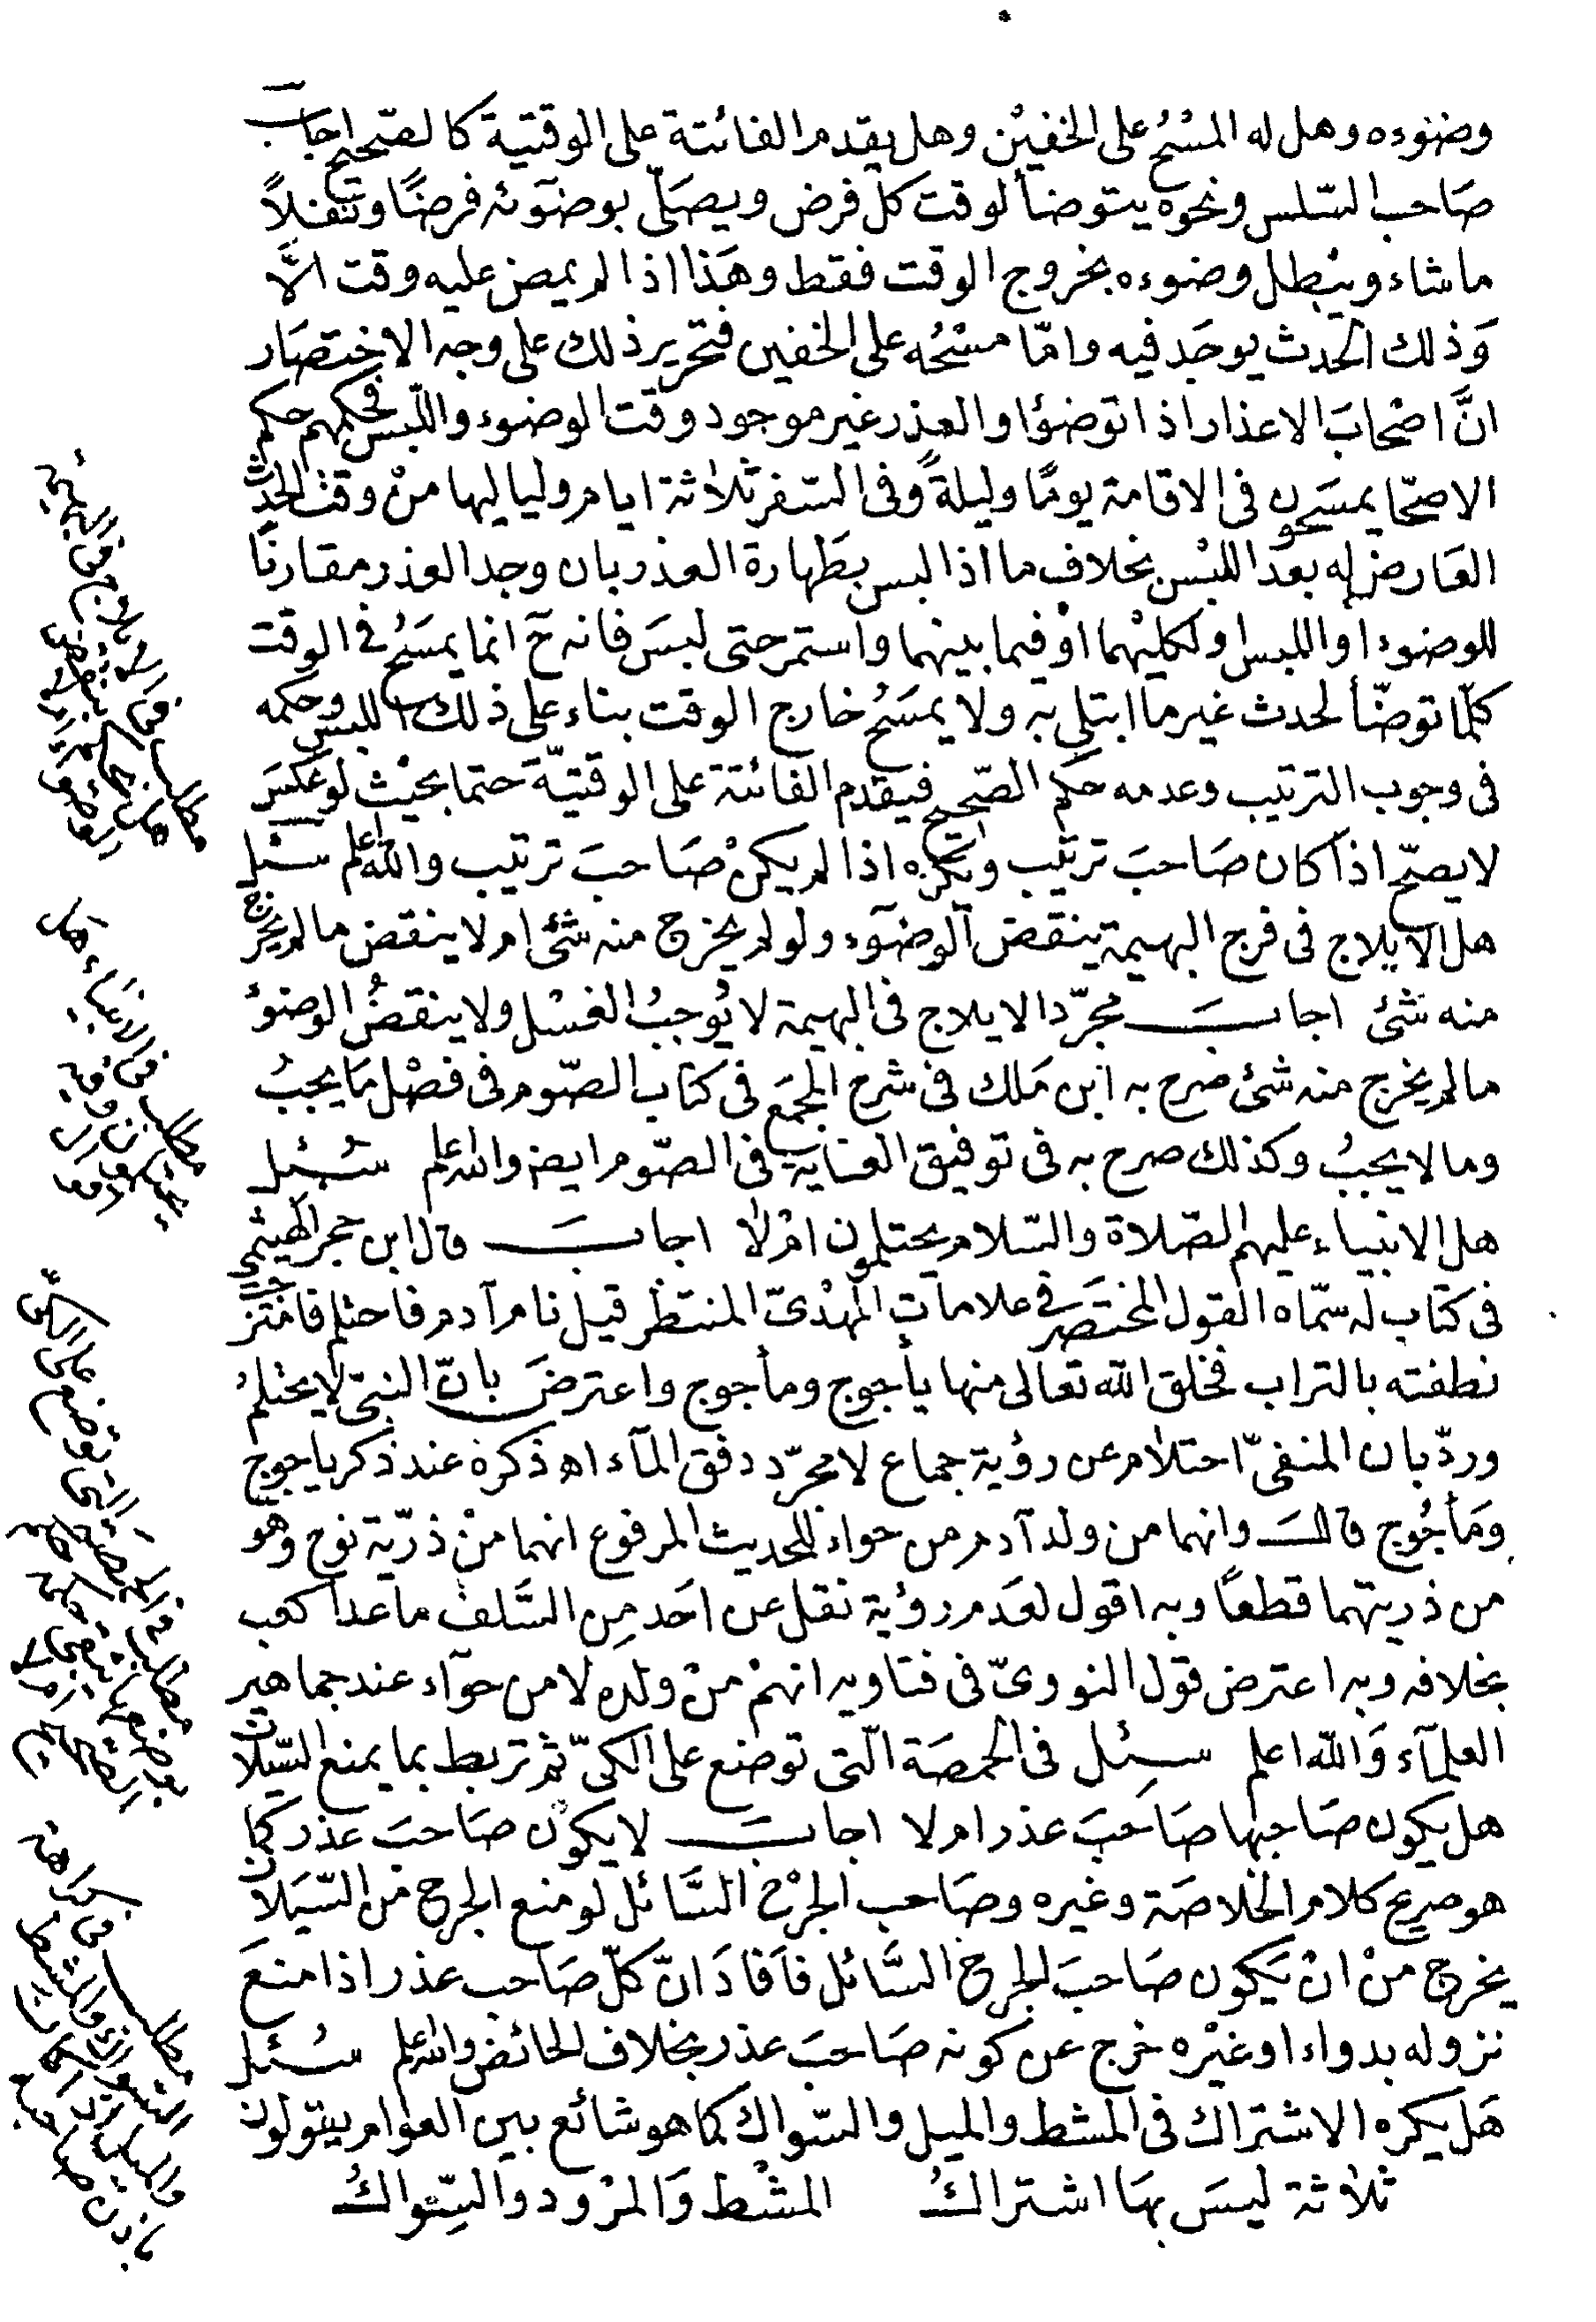 وضوءه وهل له المسْحُ على الخفيْن وهل يقدم الفائتة على الوقتية كالصّحيح اجاب
صَاحب السّلس ونحوه يتوضأ لوقت كلّ فرض ويصَلّى بوضوٓئه فرضًا ونفلاً
ما شاء ويبْطل وضوءه بخروج الوقت فقط وهَذا اذا لم يمض عليه وقت الاَّ
وَذلك الحدث يوجَد فيه وامّا مسْحُه على الخفين فتحرير ذلك على وجه الاختصَار
انَّ اصْحابَ الاعذار اذا توضؤا والعذر غير موجود وقت الوضوء واللّبس فحكمهم حكم
الاصحّا يمسَحون فى الاقامة يومًا وليلةً وفى السّفر ثلاثة ايام ولياليها منْ وقت الحدث
العَارض له بعد اللبْس بخلاف ما اذا لبس بطَهارة العذر بان وجد العذر مقارنًا
للوضوء او اللبس او لكليْهما اوْ فيما بينهما واستمر حتى لبسَ فانه حَ انما يمسَحُ فى الوقت
كلّما توضّأ لحدث غير ما ابتلى به ولا يمسَحُ خارج الوقت بناء على ذلك اللبس وحكمه
فى وجوب الترتيب وعدمه حكم الصّحيح فيقدم الفائتة على الوقتيّة حتما بحيْث لو عكسَ
لا يصحّ اذا كان صَاحبَ ترتيب ويكره اذا لم يكنْ صَاحبَ ترتيب والله اعلم سئل
هل الايلاج فى فرج البهيمة ينقض الوضوٓء ولو لم يخرج منه شئ ام لا ينقض ما لم يخرج
منه شئ اجابَ مجرّد الايلاج فى البهيمة لا يُوجبُ الغسْل ولا ينقضُ الوضؤُ
ما لم يخرج منه شئ صرح به ابن مَلك فى شرح المجْمَع فى كتاب الصّوم فى فصْل مَا يجبُ
وما لا يجبُ وكذلك صرح به فى توفيق العناية فى الصّوم ايضا والله اعلم سُئِل
هل الانبياء عليهم الصّلاة والسّلام يحتلمون امْ لا اجابَ قال ابن حجر الهيثمى
فى كتاب له سمّاه القول المختصَر فى علامات المَهْدىّ المنتظر قيل نام آدم فاحتلم فامتزجت
نطفته بالتراب فخلق الله تعالى منها يأجوج ومأجوج واعترضَ بانّ النبىّ لا يحتلمُ
وردّ بان المنفىّ احتلام عن رؤية جماع لا مجرّد دفق المآء اه ذكره عند ذكر ياجوج
وَمَأجُوج قال وانهما من ولد آدم من حواء للحديث المرفوع انهما منْ ذرّية نوح وهو
من ذريتهما قطعًا وبه اقول لعَدم رؤية نقل عن احَد مِن السَّلف ما عدا كعب
بخلافه وبه اعترض قول النووىّ فى فتاويه انهمْ منْ ولده لا من حوٓاء عند جماهير
العلمآء وَالله اعلم سِئل فى الحمصَة الّتى توضع على الكىّ ثم تربط بما يمنع السّيلان
هل يكون صَاحبها صَاحبَ عذر ام لا اجابَ لا يكون صَاحبَ عذر كما
هو صريح كلام الخلاصَة وغيره وصَاحب الجرْح السَّائل لو منع الجرح من السّيَلان
يخرج منْ انْ يَكون صَاحبَ الجرح السَّائل فاَفادَ انّ كلّ صَاحب عذر اذا منعَ
نزوله بدواء اوغيْره خرج عن كونه صَاحبَ عذر بخلاف الحائض والله اعلم سُئل
هَل يكره الاشتراك فى المشط والميل والسّواك كما هو شائع بين العوام يتولون
ثلاثة ليسَ بهَا اشتراكُ المشْط وَالمرْود والسِّواكُ